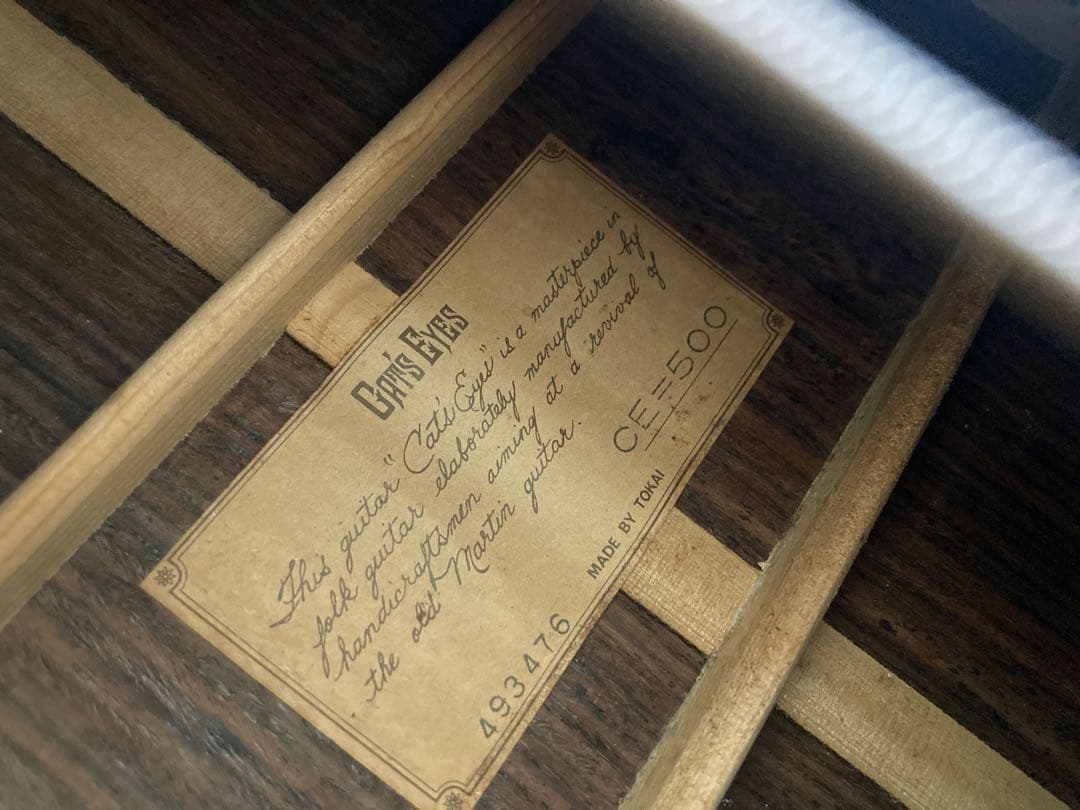 CAT'S EYES
This guitar "Cat's Eyes" is a masterpiece in
folk guitar elaborately manufactured by
handicraftsmen aiming at a revival of
the old Martin guitar.
CE=500
493476
MADE BY TOKAI